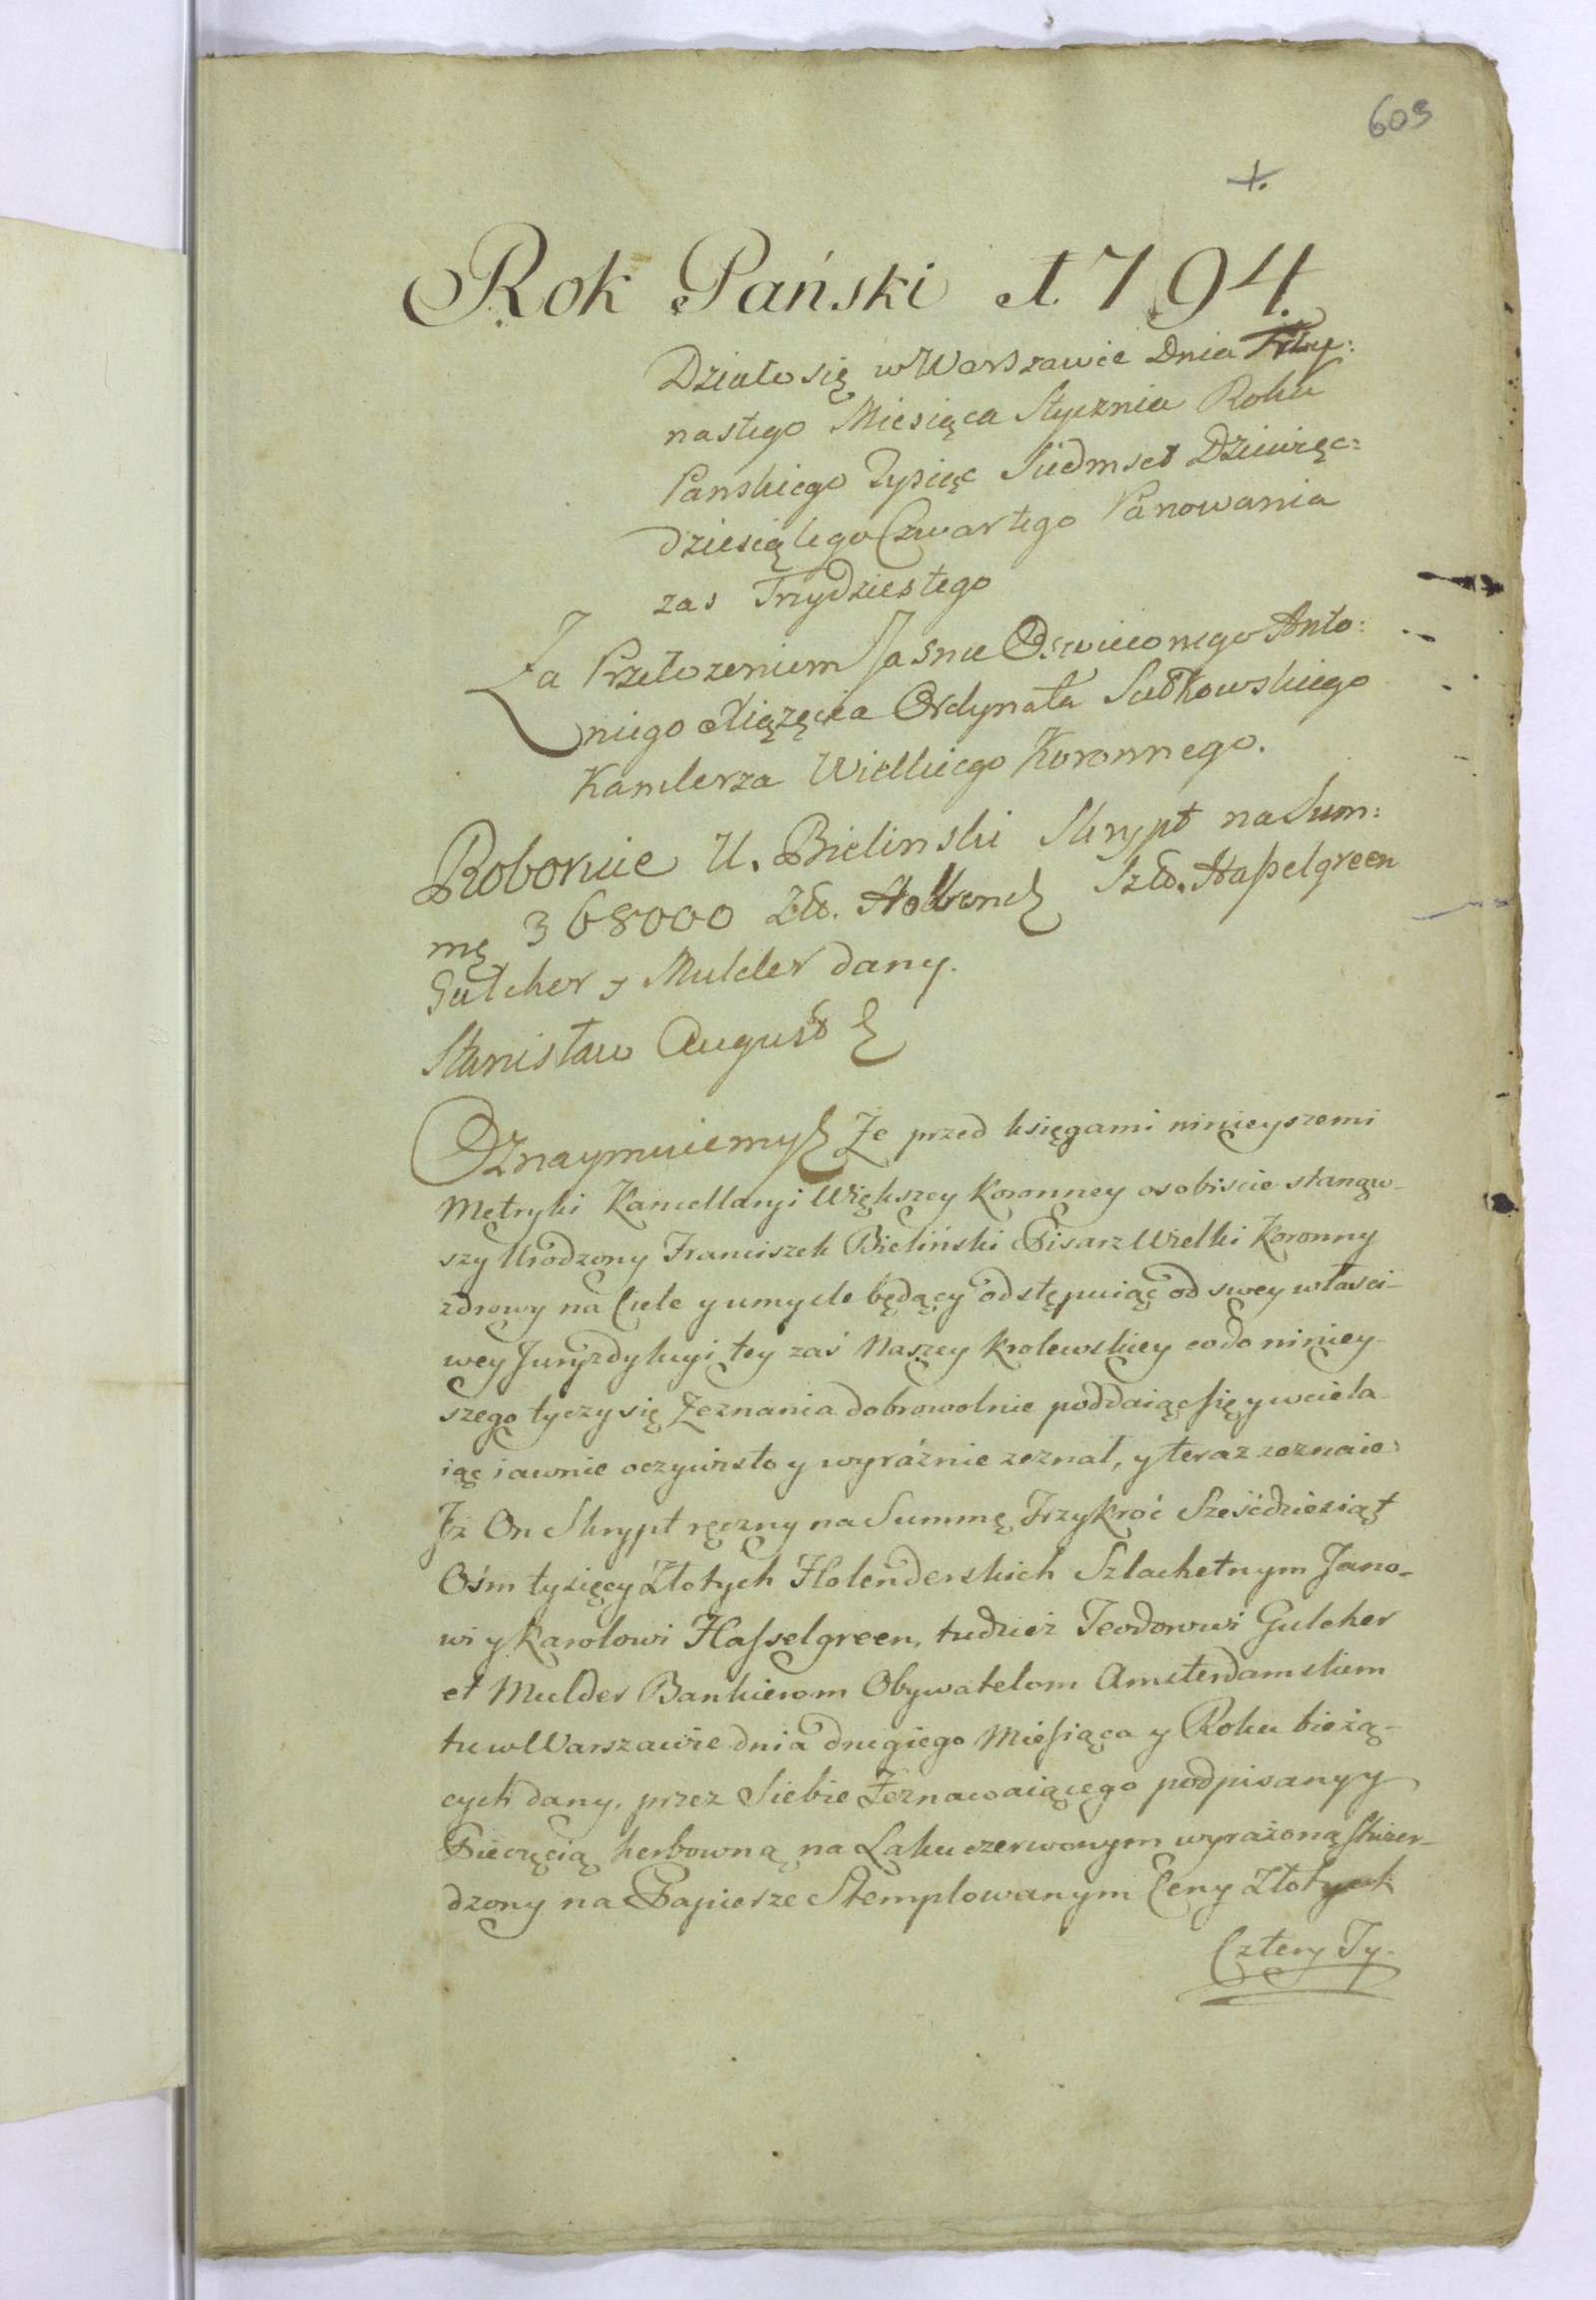 609
+.
Rok Pański 1794.
Działo się w Warszawie Dnia Trzy:
nastego Miesiąca Stycznia Roku
Panskiego Tysiąc Siedmset Dziewięc:
dziesiątego Czwartego Panowania
zas Trzydziestego
Za Przełozeniem Jasnie Oswieconego Anto:
niego Xiązęcia Ordynata Sułkowskiego
Kanclerza Wielkiego Koronnego.
Roboruie U. Bielinski Skrypt na Sum:
mę 368000 Zł. Hollend Szl. Hasselgreen
Gulcher y Mulder dany.
Stanisław August
Oznaymuiemy Ze przed księgami ninieyszemi
Metryki Kancellaryi Większey Koronney osobiscie stanąw-
szy Urodzony Franciszek Bieliński Pisarz Wielki Koronny
zdrowy na Ciele y umysle będący odstępuiąc od swey własci-
wey Juryzdykcyi tey zaś Naszey krolewskiey co do niniey-
szego tyczy się Zeznania dobrowolnie poddaiąc się y wciela-
iąc iawnie oczywisto y wyráźnie zeznał, y teraz zeznaie:
Jż On Skrypt ręczny na Summę Trzykróć Sześćdziesiąt
Ośm tysięcy Złotych Holenderskich Szlachetnym Jano-
wi y Karolowi Hasselgreen, tudzież Teodorowi Gulcher
et Mulder Bankierom Obywatelom Amsterdamskiem
tu w Warszawie dnia drugiego Miesiąca y Roku bieżą-
cych dany, przez Siebie Zeznawaiącego podpisany y
Pieczęcią herbowną na Laku czerwonym wyrażoną stwier-
dzony na Papierze Stemplowanym Ceny Złotych
Cztery Ty-